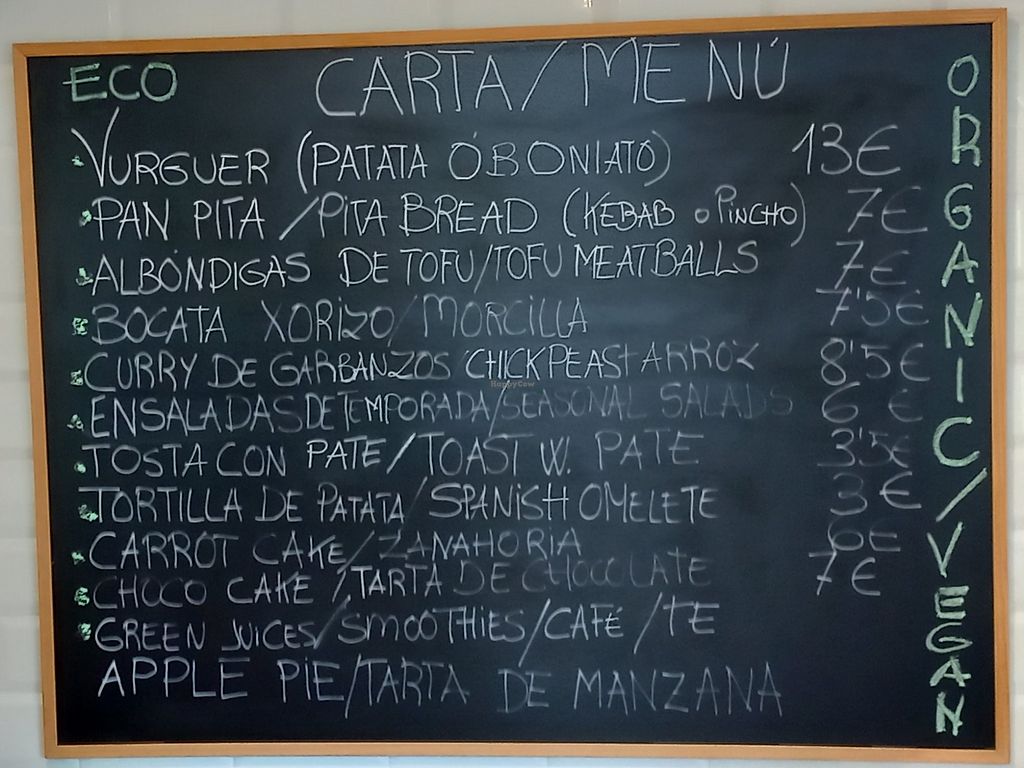 ECO CARTA/MENÚ
VURGUER (PATATA Ó BONIATO) 13€
PAN PITA /PITA BREAD (KEBAB o PINCHO) 7€
ALBÓNDIGAS DE TOFU/TOFU MEATBALLS 7€
BOCATA XORIZO/MORCILLA 7'5€
CURRY DE GARBANZOS CHICKPEAS+ARROZ 8'5€
HappyCow
ENSALADAS DE TEMPORADA/SEASONAL SALADS 6 €
TOSTA CON PATE/TOAST W. PATE 3'5€
TORTILLA DE PATATA/SPANISH OMELETE 3€
CARROT CAKE/ZANAHORIA 6€
CHOCO CAKE /TARTA DE CHOCOLATE 7€
GREEN JUICES/SMOOTHIES/CAFÉ /TE
APPLE PIE/TARTA DE MANZANA
ORGANIC/VEGAN